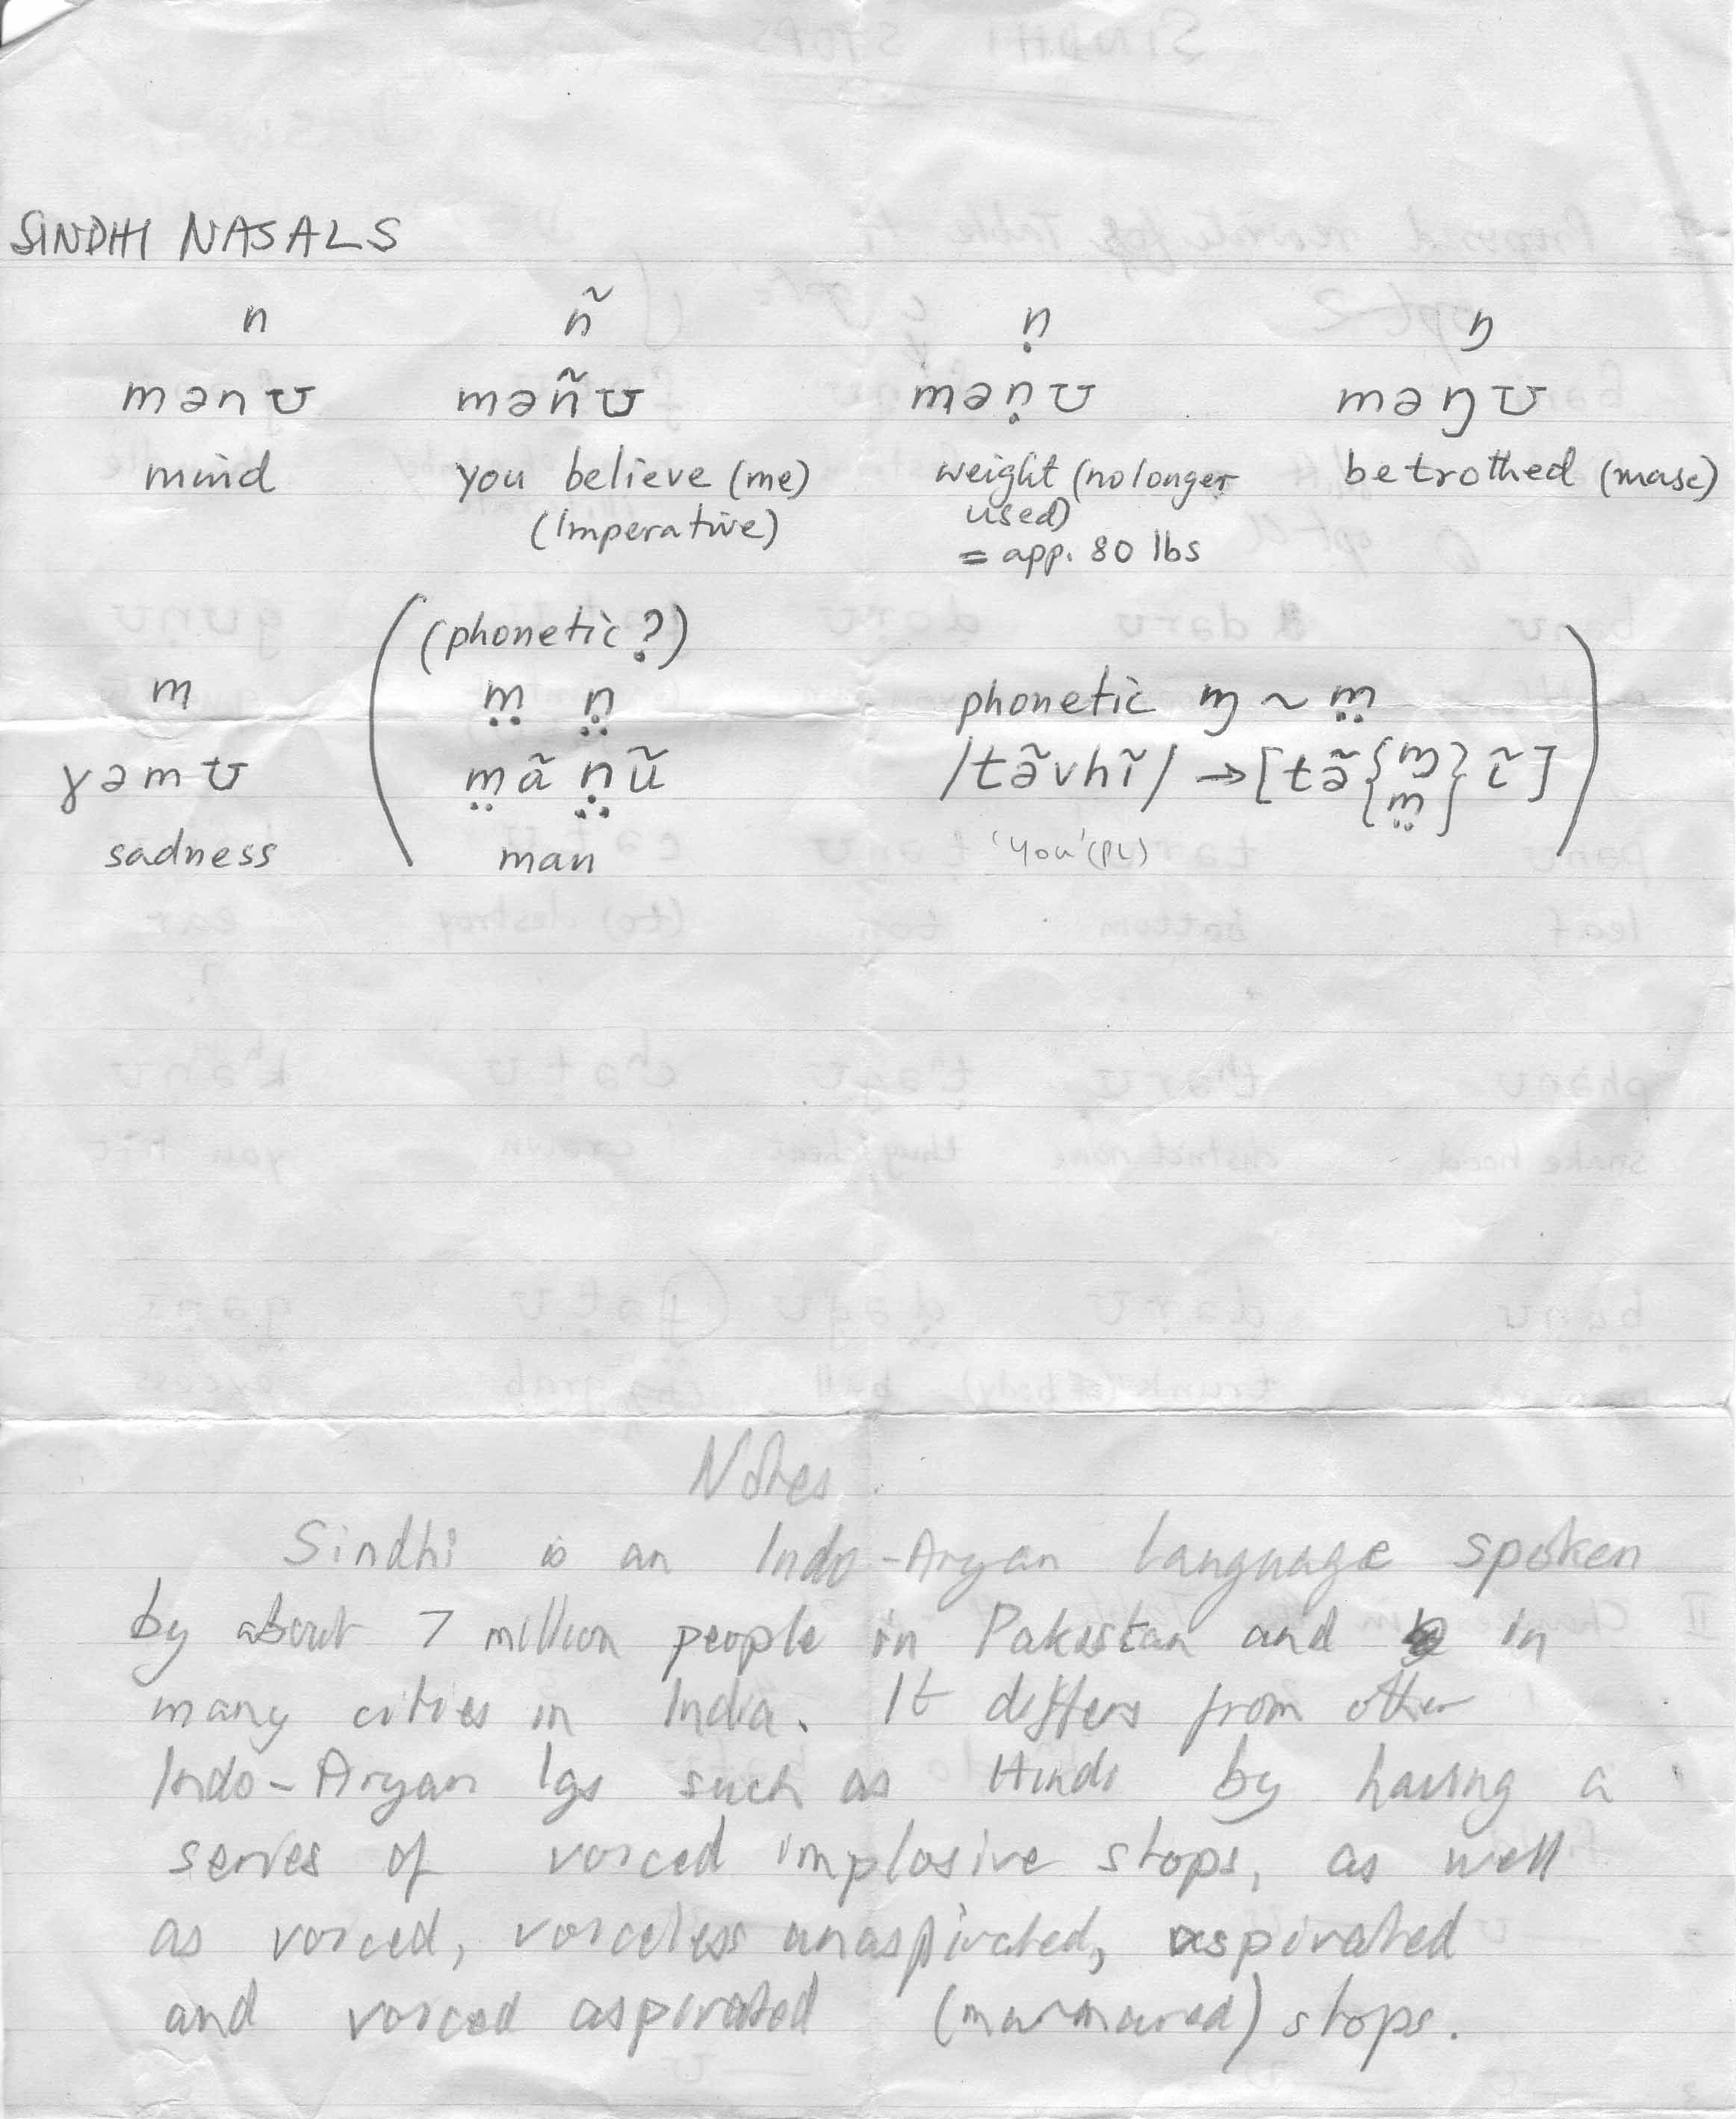 SINDHI NASALS
n ñ ṇ ŋ
mənʊ məñʊ məṇʊ məŋʊ
mind you believe (me) weight (no longer betrothed (masc)
(Imperative) used)
= app. 80 lbs
(phonetic?)
m m̤ n̤ phonetic ɱ ~ m̤
ɣəmʊ m̤ã ṇ̤ũ /tə̃vhĩ/ → [tə̃{ɱ m̤}ĩ]
sadness man 'you' (pl)
Notes
Sindhi is an Indo-Aryan language spoken
by about 7 million people in Pakistan and in
many cities in India. It differs from other
Indo-Aryan lgs such as Hindi by having a
series of voiced implosive stops, as well
as voiced, voiceless unaspirated, aspirated
and voiced aspirated (murmured) stops.